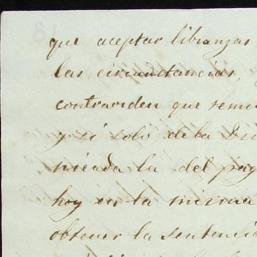 que aceptar libranzas
las circunstancias,
contrariden que
y si solo de la
la del pag
hoy en la misma
obtener la sentencia